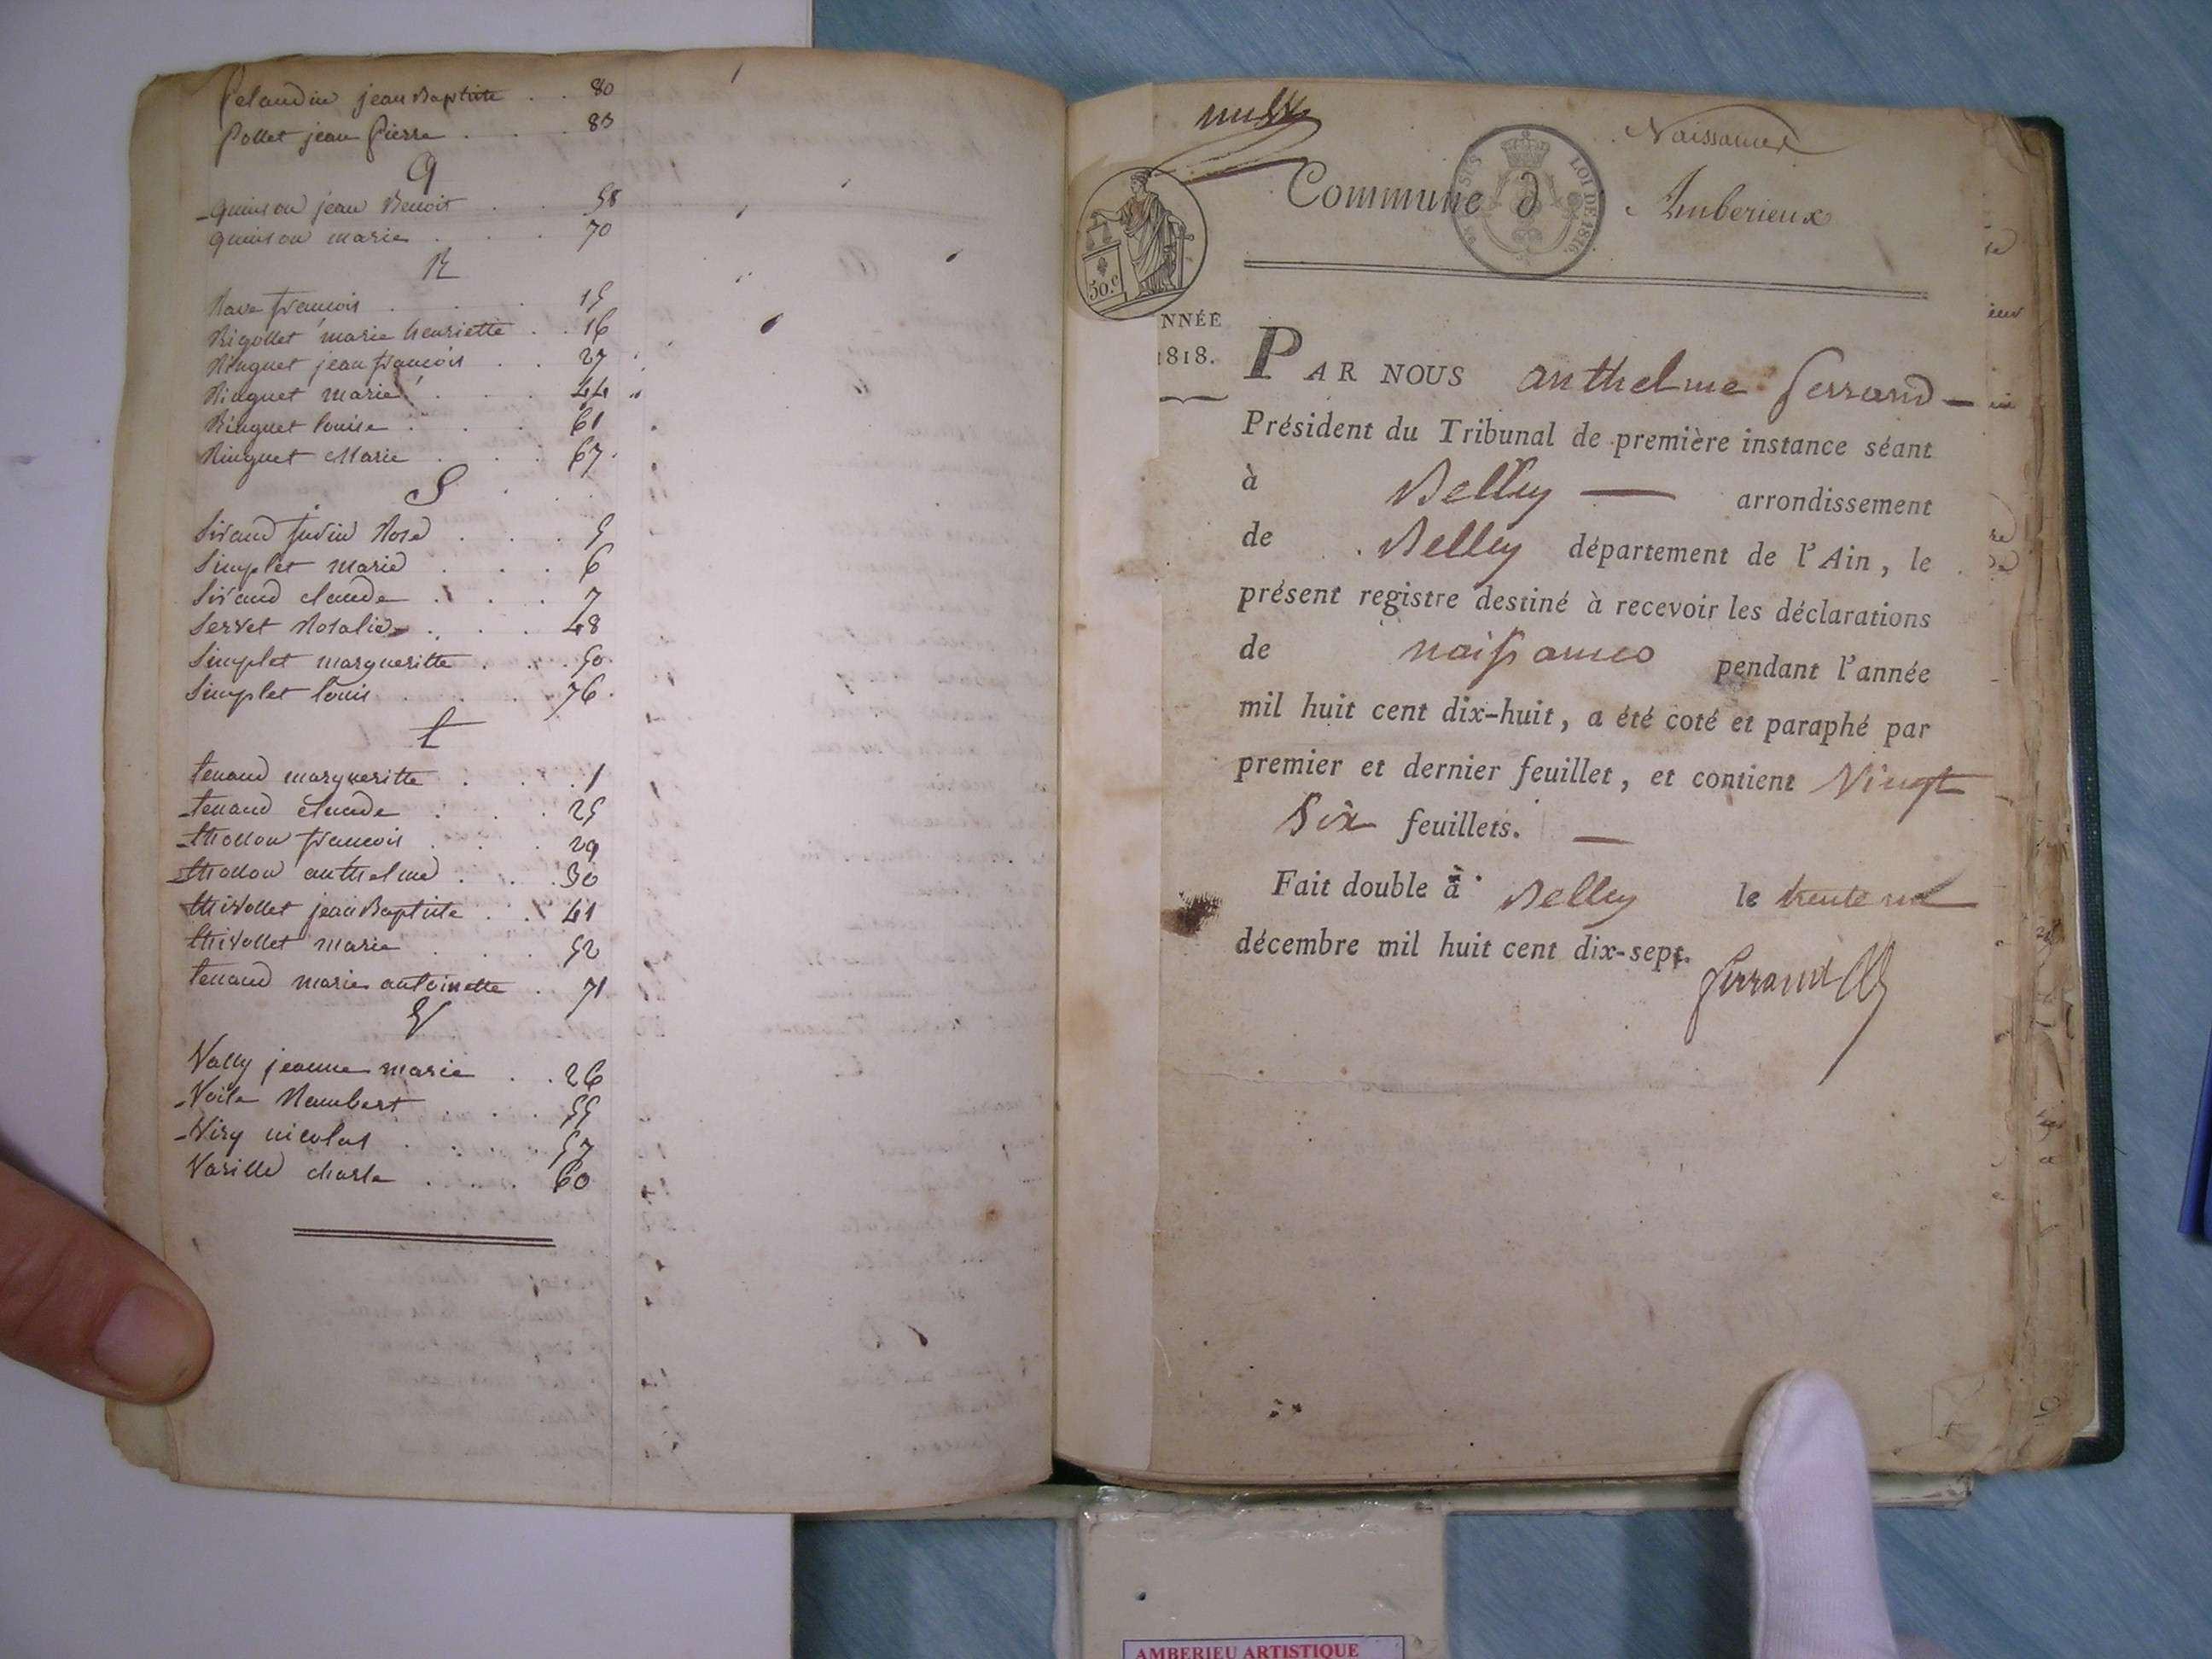 Pelaudin jean Baptiste . . 80
Pollet jean Pierre . . . 83
Q
quinson jean Benoit . . 58
quinson marie . . . 70
R
Rave francois . . . 15
Rigollet marie henriette . . 16
Ringuet jean francois . . 27
Ringuet marie . . . 44
Ringuet louise . . . 61
Ringuet Marie . . . 67
S
Sivaud Rose . . . 5
Simplet marie . . . 6
Sivaud claude . . . 7
Servet Rosalie . . . 48
Simplet margueritte . . . 50
Simplet louis . . . 76
t
tenand margueritte . . . 1
tenand claude . . . 25
francois . . . 29
anthelme . . . 30
thivollet jean Baptiste . . 41
thivollet marie . . . 52
tenand marie antoinette . 71
V
Vally jeanne marie . . 26
Voile Rambert . . . 55
Viry nicolas . . . 57
Varille charle . . . 60
Naissances
Commune d' Amberieux
SUS LOI DE 1816.
50.c
NNÉE
1818.
PAR NOUS anthelme ferrand
Président du Tribunal de première instance séant
à Belley arrondissement
de Belley département de l'Ain, le
présent registre destiné à recevoir les déclarations
de naissances pendant l'année
mil huit cent dix-huit, a été coté et paraphé par
premier et dernier feuillet, et contient Vingt
Six feuillets.
Fait double à Belley le trente un
décembre mil huit cent dix-sept.
ferrand
AMBERIEU ARTISTIQUE